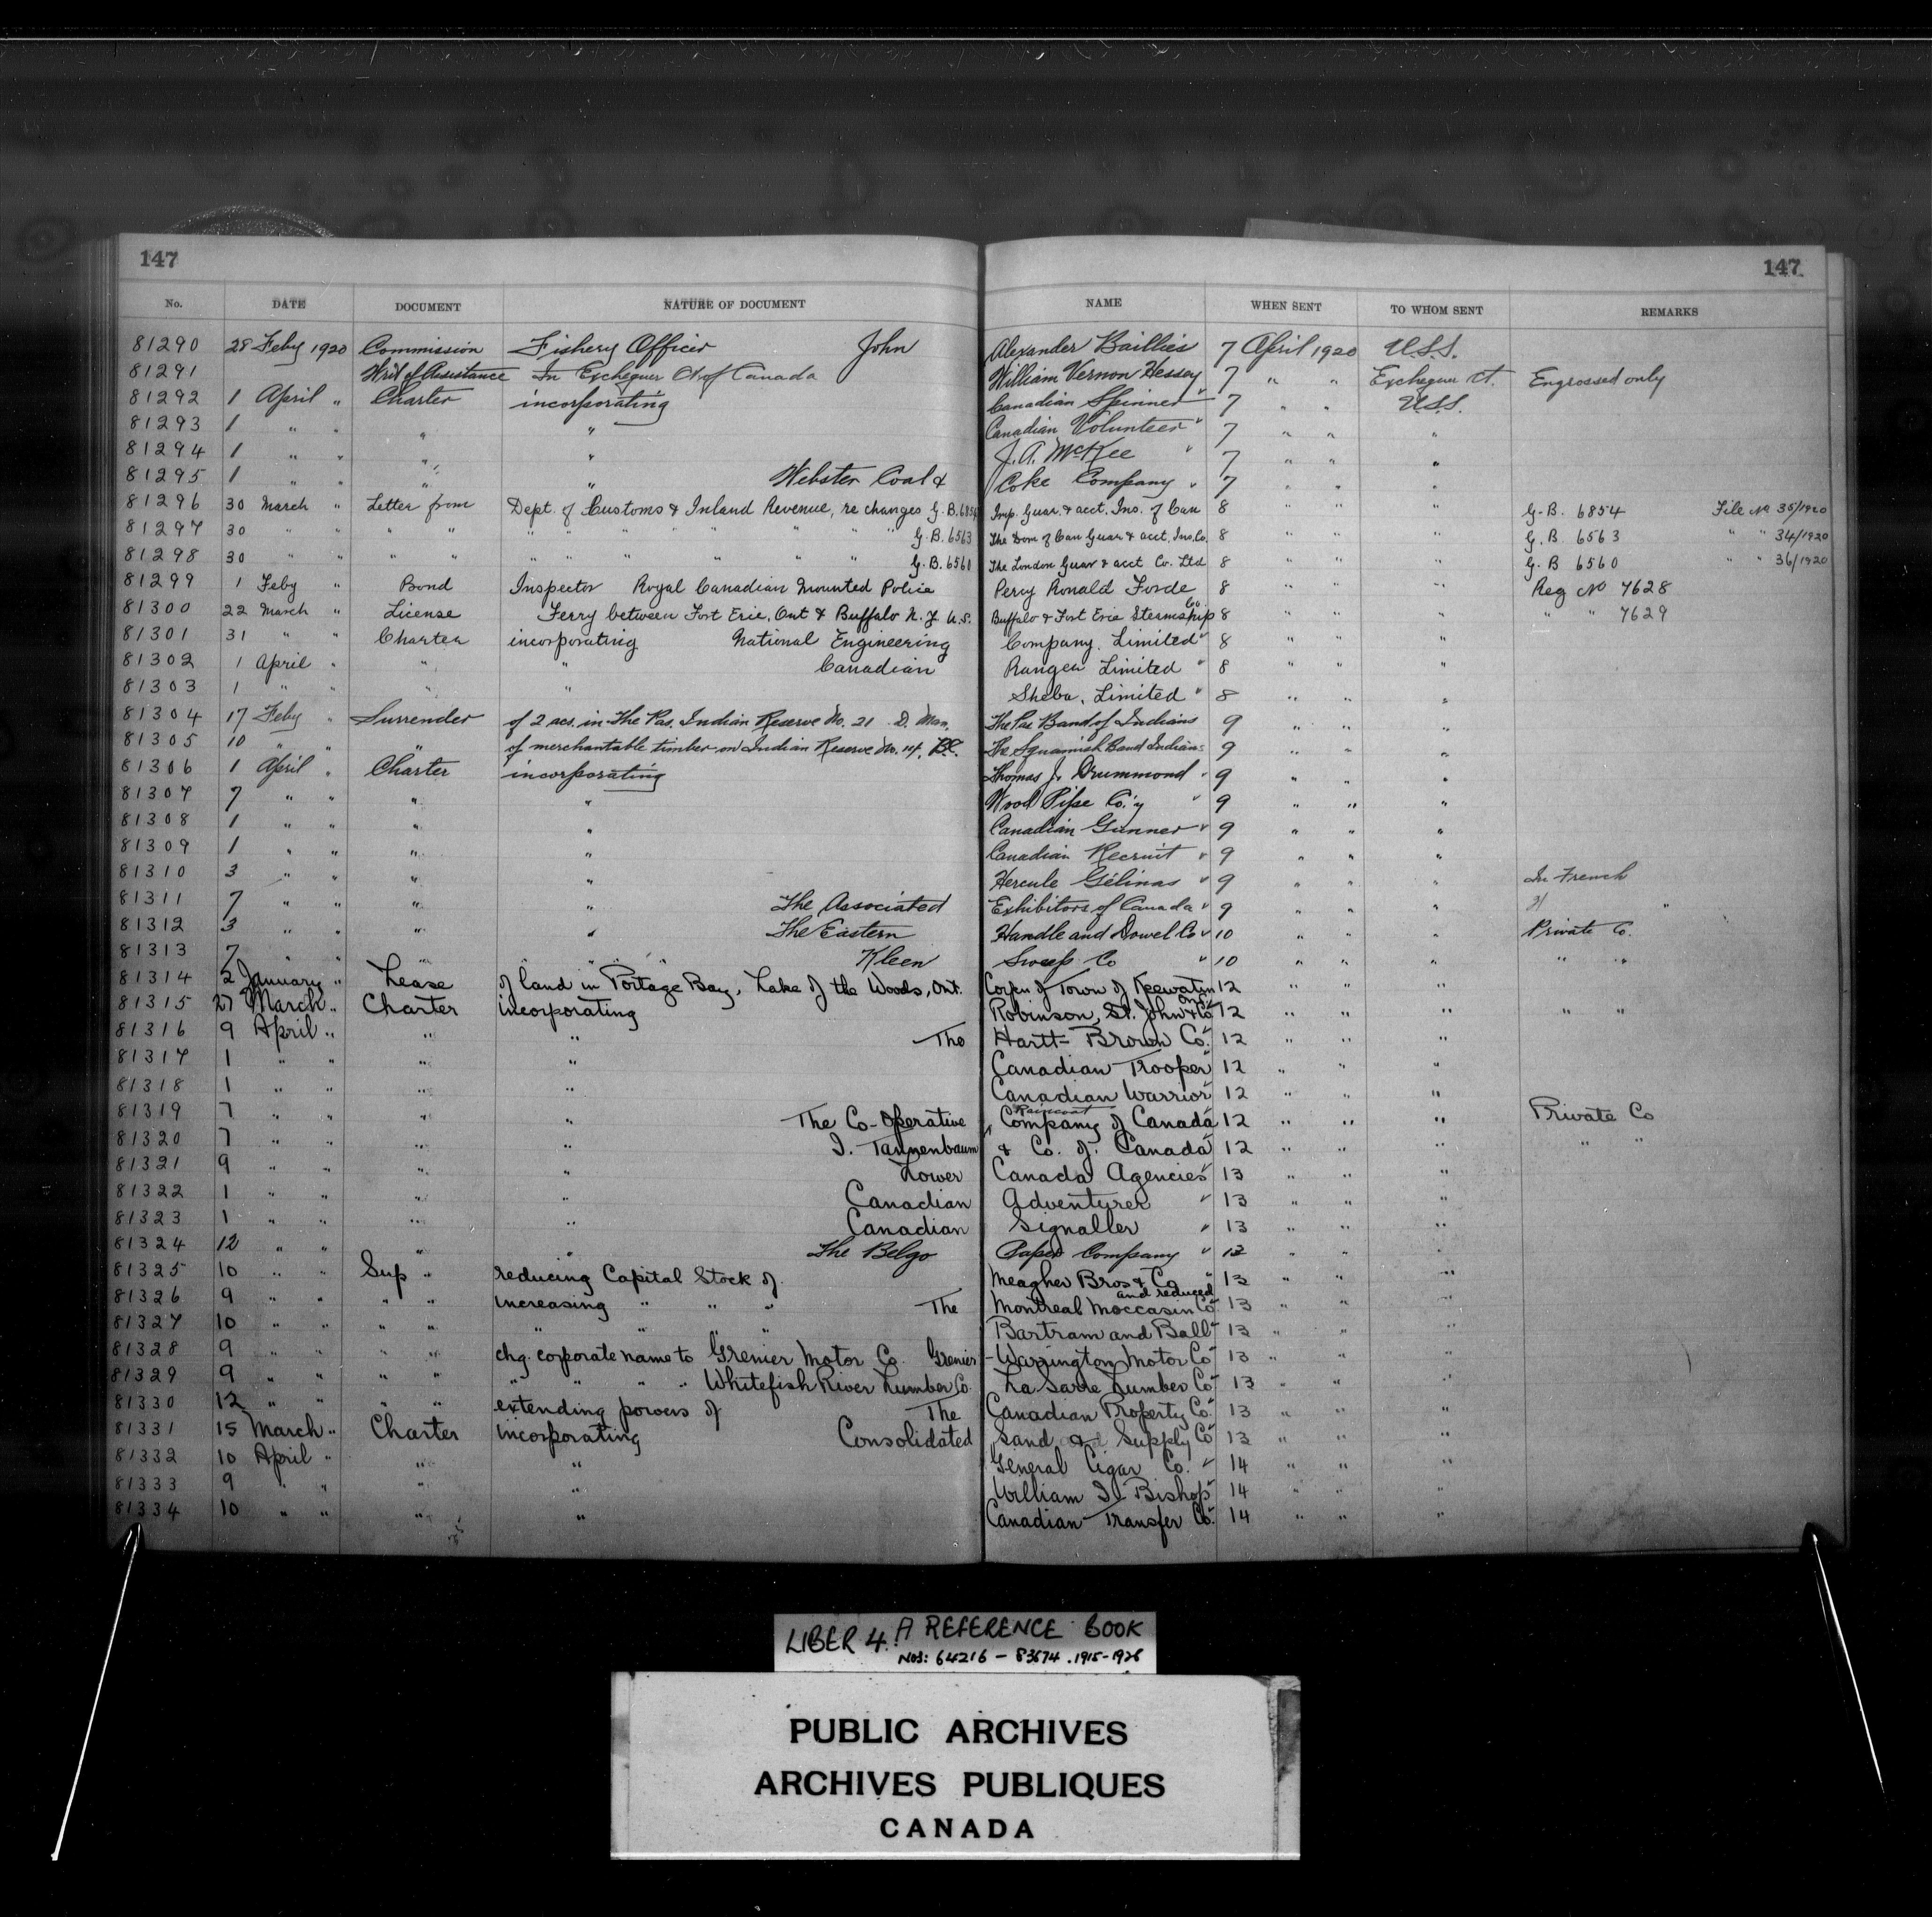 147 147
No. DATE DOCUMENT NATURE OF DOCUMENT NAME WHEN SENT TO WHOM SENT REMARKS
81290 28 Feby 1920 Commission Fishery Officer John Alexander Baillies 7 April 1920 U.S.S.
81291 Writ of Assistance In Exchequer Ct of Canada William Vernon Hessey 7 " " Exchequer Ct. Engrossed only
81292 1 April " Charter incorporating Canadian Spinner " 7 " " U.S.S.
81293 1 " " " " Canadian Volunteer " 7 " " "
81294 1 " " " " J. A. McKee " 7 " " "
81295 1 " " " " Webster Coal & Coke Company " 7 " " "
81296 30 March " Letter from Dept. of Customs & Inland Revenue, re changes G.B. 6854 Imp. Guar. & acct. Ins. of Can 8 " " " G.B. 6854 File No 35/1920
81297 30 " " " " " " " " " " G.B. 6563 The Dom of Can Guar & acct. Ins. Co. 8 " " " G.B. 6563 " " 34/1920
81298 30 " " " " " " " " " " G.B. 6560 The London Guar & acct Co. Ltd 8 " " " G.B 6560 " " 36/1920
81299 1 Feby " Bond Inspector Royal Canadian Mounted Police Percy Ronald Forde 8 " " " Reg No 7628
81300 22 March " License Ferry between Fort Erie, Ont & Buffalo N.Y. U.S. Buffalo & Fort Erie Steamship Co. 8 " " " " " 7629
81301 31 " " Charter incorporating National Engineering Company, Limited " 8 " " "
81302 1 April " " " Canadian Ranger Limited " 8 " " "
81303 1 " " " " Sheba, Limited " 8 " " "
81304 17 Feby " Surrender of 2 acs. in The Pas, Indian Reserve No. 21 D. Man. The Pas Band of Indians 9 " " "
81305 10 " " " of merchantable timber on Indian Reserve No. 14, B.C. The Squamish Band Indians 9 " " "
81306 1 April " Charter incorporating Thomas J. Drummond " 9 " " "
81307 7 " " " " Wood Pipe Co'y " 9 " " "
81308 1 " " " " Canadian Gunner " 9 " " "
81309 1 " " " " Canadian Recruit " 9 " " "
81310 3 " " " " Hercule Gélinas " 9 " " " In French
81311 7 " " " " The Associated Exhibitors of Canada " 9 " " " "
81312 3 " " " " The Eastern Handle and Dowel Co " 10 " " " Private Co.
81313 7 " " " " " " Kleen Sweep Co " 10 " " " " "
81314 2 January " Lease of land in Portage Bay, Lake of the Woods, Ont. Corpn of Town of Keewatin Ont. 12 " " "
81315 27 March " Charter incorporating Robinson, St. John & Co " 12 " " " " "
81316 9 April " " " The Hartt-Brown Co. " 12 " " "
81317 1 " " " " Canadian Trooper " 12 " " "
81318 1 " " " " Canadian Warrior " 12 " " "
81319 7 " " " " The Co-Operative Raincoat Company of Canada " 12 " " " Private Co
81320 7 " " " " I. Tannenbaum & Co. of Canada " 12 " " " " "
81321 9 " " " " Lower Canada Agencies " 13 " " "
81322 1 " " " " Canadian Adventurer " 13 " " "
81323 1 " " " " Canadian Signaller " 13 " " "
81324 12 " " " " The Belgo Paper Company " 13 " " "
81325 10 " " Sup " reducing Capital Stock of Meagher Bros & Co " 13 " " "
81326 9 " " " " increasing " " " The Montreal Moccasin Co and reduced " 13 " " "
81327 10 " " " " " " " " Bartram and Ball " 13 " " "
81328 9 " " " " chg. corporate name to Grenier Motor Co. Grenier-Warrington Motor Co " 13 " " "
81329 9 " " " " " " " " Whitefish River Lumber Co. La Sarre Lumber Co " 13 " " "
81330 12 " " " " extending powers of The Canadian Property Co. " 13 " " "
81331 15 March " Charter incorporating Consolidated Sand & Supply Co " 13 " " "
81332 10 April " " " General Cigar Co. " 14 " " "
81333 9 " " " " William I. Bishop " 14 " " "
81334 10 " " " " Canadian Transfer Co. " 14 " " "
LIBER 4. A REFERENCE BOOK
NOS: 64216 – 83674. 1915-1926
PUBLIC ARCHIVES
ARCHIVES PUBLIQUES
CANADA